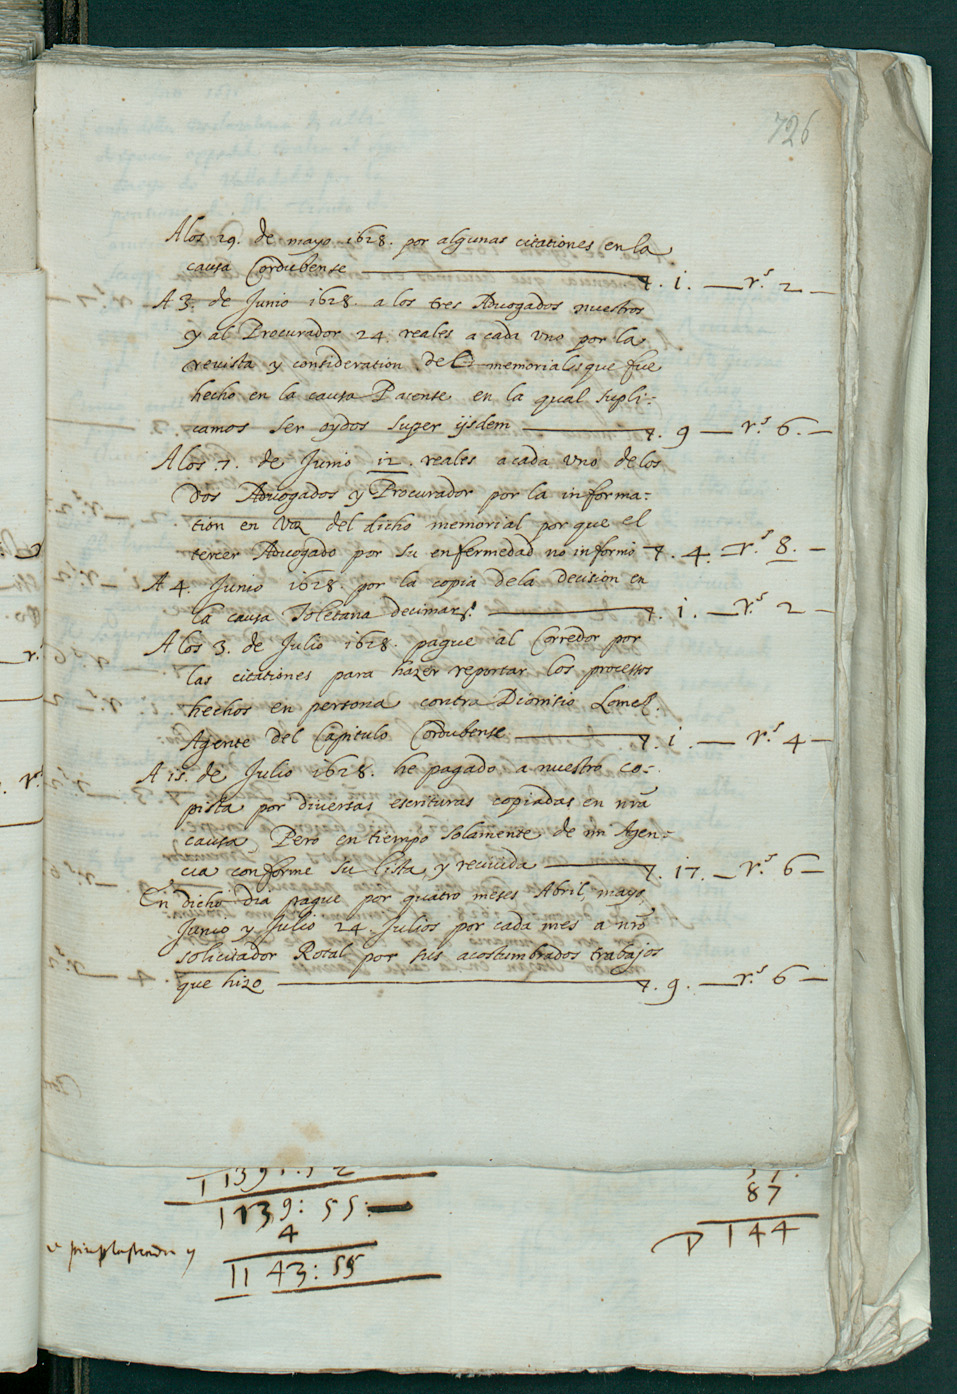 726
A los 29. de mayo 1628. por algunas citationes en la
causa Cordubense — 7. 1. — r.s 2 —
A 3. de Junio 1628. a los tres Advogados nuestros
y al Procurador 24. reales a cada uno por la
revista y consideration del memorial que fue
hecho en la causa Pacense en la qual supli:
camos ser oydos super ijsdem — 7. 9 — r.s 6. —
A los 7. de Junio 12. reales a cada uno de los
dos Advogados y Procurador por la informa:
tion en voz del dicho memorial por que el
tercer Advogado por su enfermedad no informó 7. 4. — r.s 8. —
A 4. Junio 1628. por la copia dela decision en
la causa Toletana decimar. — 7. 1. — r.s 2 —
A los 3. de Julio 1628. pague al Corredor por
las citationes para hazer reportar los processos
hechos en persona contra Dionisio Lomel.
Agente del Capitulo Cordubense — 7. 1. — r.s 4 —
A 15. de Julio 1628. he pagado a nuestro co:
pista por diversas escrituras copiadas en nra
causa, Pero en tiempo solamente de mi Agen:
cia conforme su lista y recivida — 7. 17. — r.s 6 —
En dicho dia pague por quatro meses Abril, mayo,
Junio y Julio 24. Julios por cada mes a nro
solicitador Rotal por sus acostumbrados trabajos
que hizo — 7. 9. — r.s 6 —
1139: 55: —
4
1143: 55
87
144